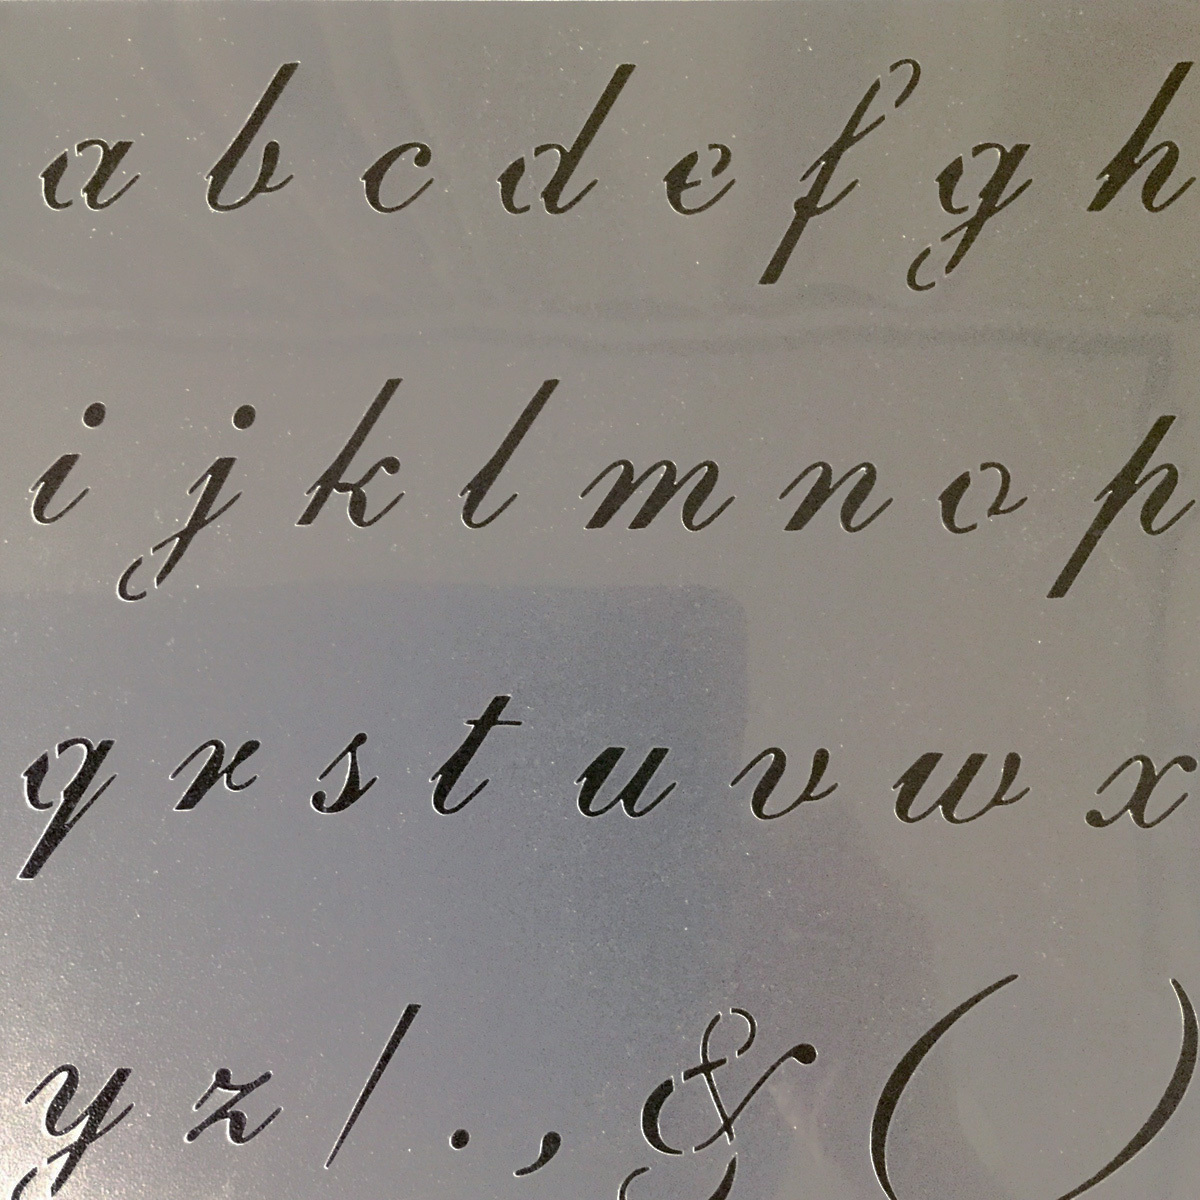 a b c d e f g h
i j k l m n o p
q r s t u v w x
y z / . , & ( )